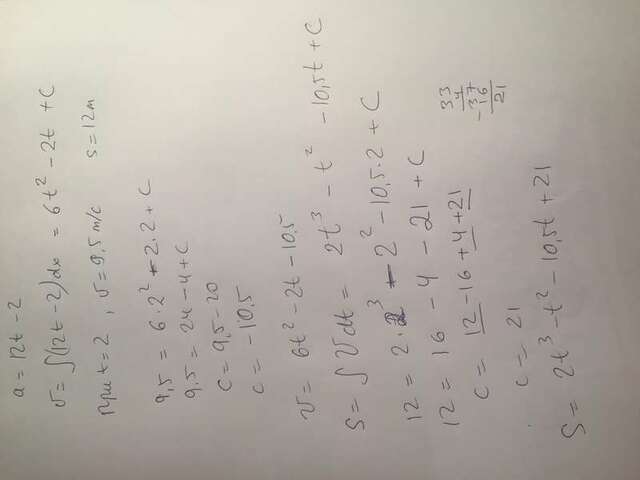 a = 12t - 2
v = ∫(12t - 2)dx = 6t² - 2t + C
При t = 2 , v = 9,5 м/с s = 12м
9,5 = 6·2² - 2·2 + C
9,5 = 24 - 4 + C
c = 9,5 - 20
c = -10,5
v = 6t² - 2t - 10,5
S = ∫Vdt = 2t³ - t² - 10,5t + C
12 = 2·2³ - 2² - 10,5·2 + C
12 = 16 - 4 - 21 + C
c = 12 - 16 + 4 + 21
33
4
37
-16
21
c = 21
S = 2t³ - t² - 10,5t + 21